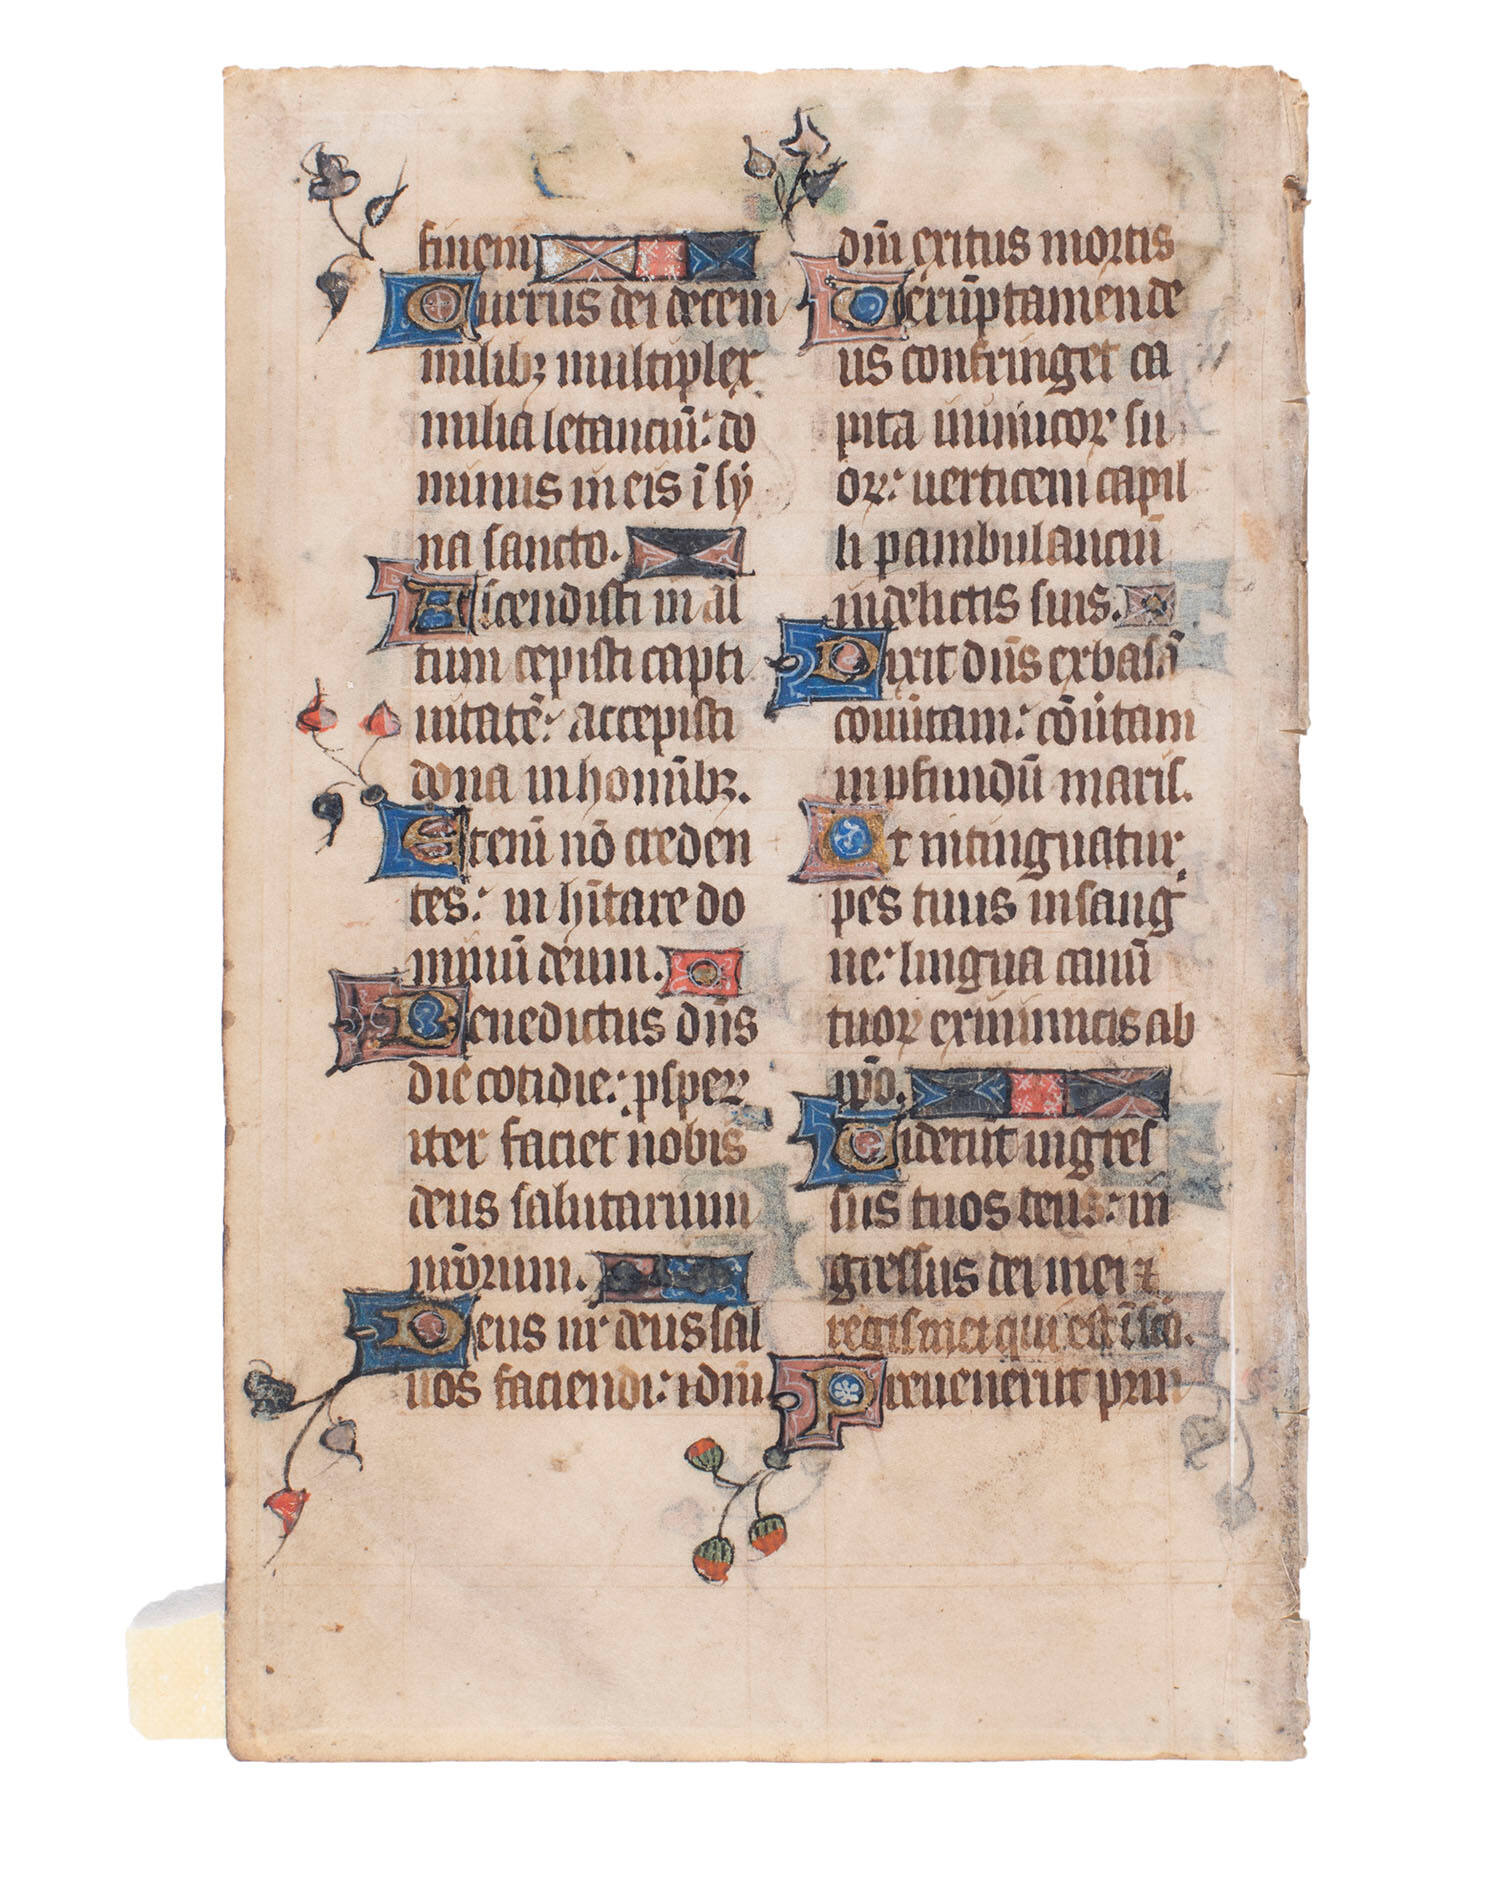 finem
Currus dei decem
milibꝫ multiplex
milia letanciū: do
minus in eis ī sy
na sancto.
Ascendisti in al
tum cepisti capti
uitatē: accepisti
dona in hominibꝫ.
Etenī nō creden
tes: inhītare do
minū deum.
Benedictus dn̄s
die cotidie: ꝓsꝑeꝝ
iter faciet nobis
deus salutarium
nr̄orum.
Deus nr̄ deus sal
uos faciendi: ⁊ dn̄i
dn̄i exitus mortis
Uerūptamen de
us confringet ca
pita inimicoꝝ su
oꝝ: uerticem capil
li ꝑambulanciū
in delictis suis.
Dixit dn̄s ex basā
conūtam: cōūtam
in ꝓfundū maris.
Ut intinguatur
pes tuus in sang
ne: lingua canū
tuoꝝ ex inimicis ab
ipō.
Uiderūt ingres
sus tuos deus: in
gressus dei mei ⁊
regis mei qui est ī scō.
Preuenerūt prin